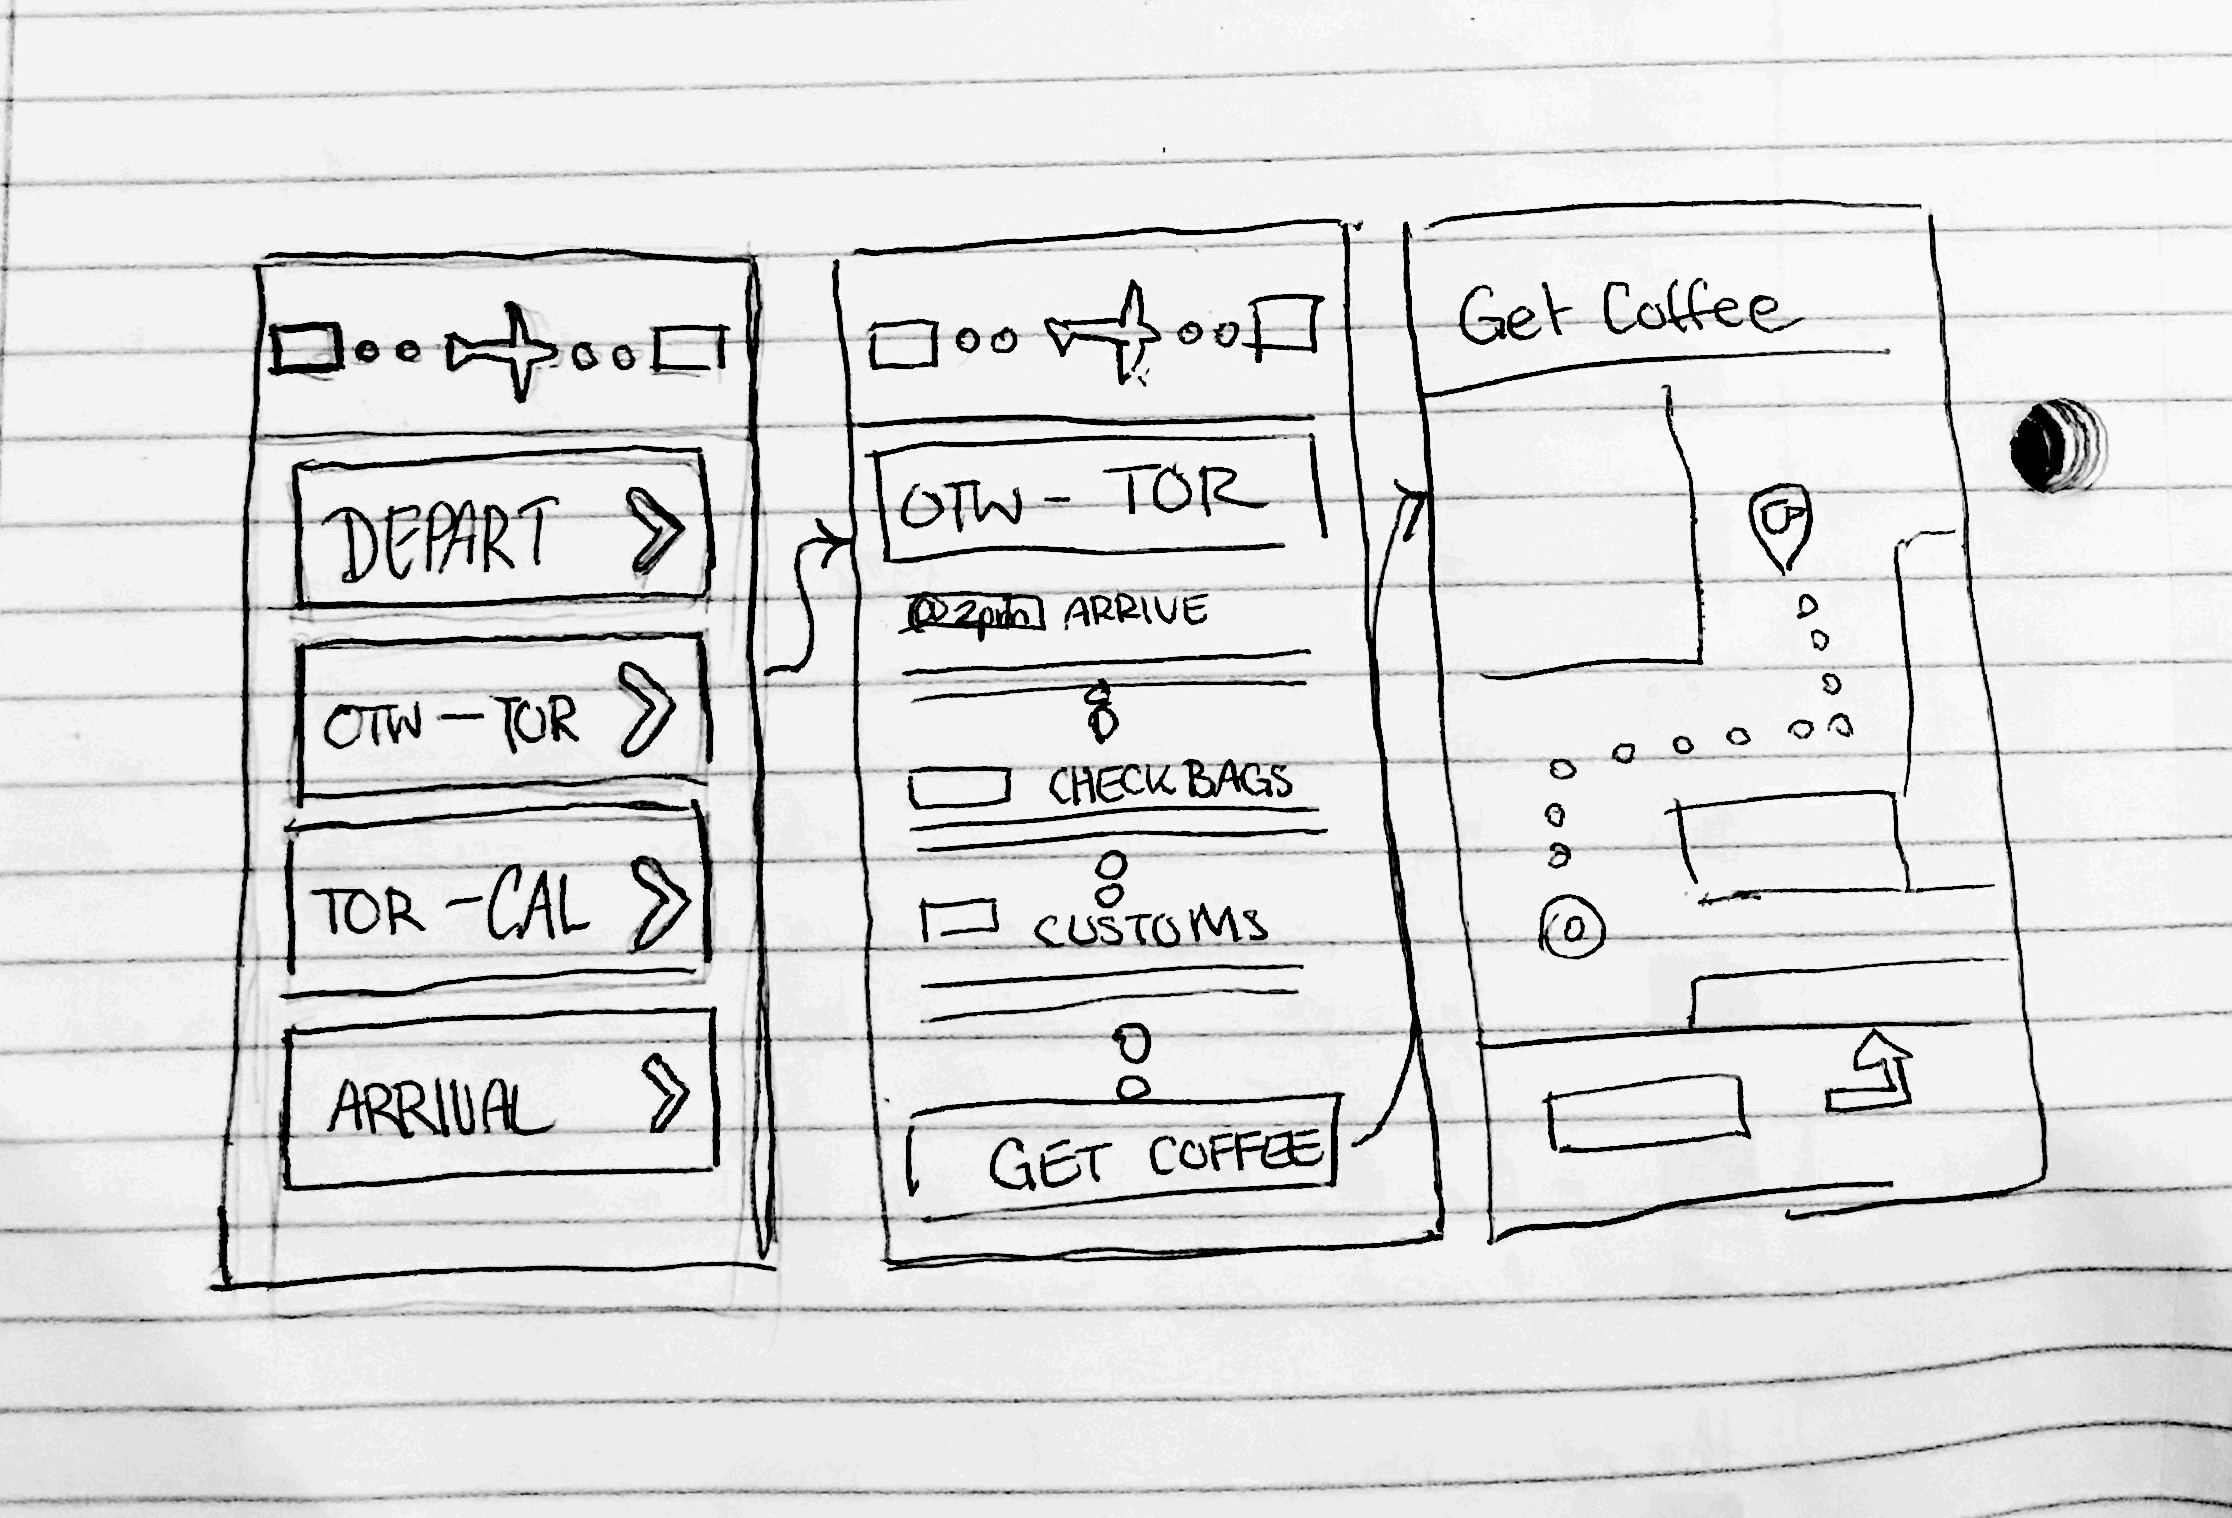 DEPART
OTW - TOR
TOR - CAL
ARRIVAL
OTW - TOR
@2pm ARRIVE
CHECK BAGS
CUSTOMS
GET COFFEE
Get Coffee